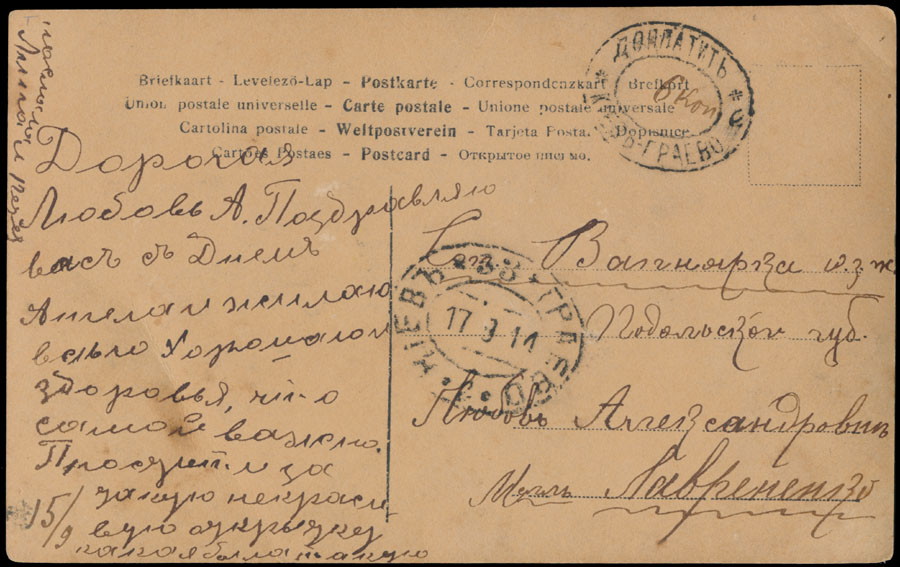 Briefkaart - Levelező-Lap - Postkarte - Correspondenzkarte Brefkort
Union postale universelle - Carte postale - Unione postale universale
Cartolina postale - Weltpostverein - Tarjeta Postal Dopisnice
Cartões Postaes - Postcard - Открытое письмо.
ДОПЛАТИТЬ
6 коп
КІЕВЪ-ГРАЕВО
Дорогая
Любовь А. Поздравляю
васъ съ Днемъ
Ангела и желаю
всего Хорошаго
здоровья, что
самое важно.
Простите за
такую некраси
вую открытку
какая была такую
15/9
КІЕВЪ * 33 * ГРАЕВО
17 9 14
Ст. Вапнярка ю.з.ж
Подольской губ.
Любовь Александровнъ
Лавриненко